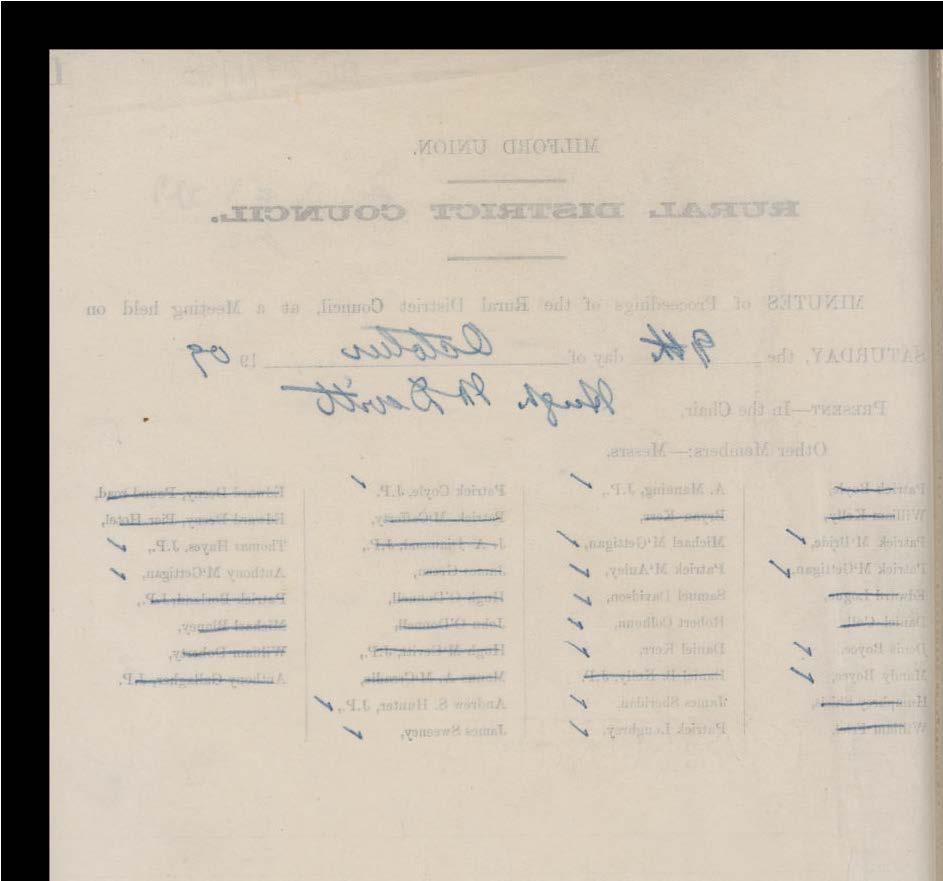 MILFORD UNION.
RURAL DISTRICT COUNCIL.
MINUTES of Proceedings of the Rural District Council, at a Meeting held on
SATURDAY, the 9th day of October 1909
PRESENT—In the Chair, Hugh McDevitt
Other Members:—Messrs.
Patrick Boyle, A. Manning, J.P., Patrick Coyle, J.P. Edward Deeny, Pound road,
William Kelly, Bryan Kerr, Patrick M'Cafferty, Edward Deeny, Pier Hotel,
Patrick M'Bride, Michael M'Gettigan, J. A. J.P., Thomas Hayes, J.P.,
Patrick M'Gettigan, Patrick M'Auley, James Green, Anthony M'Gettigan,
Edward Logue, Samuel Davidson, Hugh O'Donnell, Patrick Borland, J.P.,
Daniel Coll, Robert Colhoun, John O'Donnell, Michael Blaney,
Denis Boyce, Daniel Kerr, Hugh M'Devitt, J.P., William Doherty,
Mandy Boyce, Daniel R. Kelly, J.P. Anthony Gallagher, J.P.
Humphrey James Sheridan, Andrew S. Hunter, J.P.,
William Patrick Loughrey, James Sweeney,